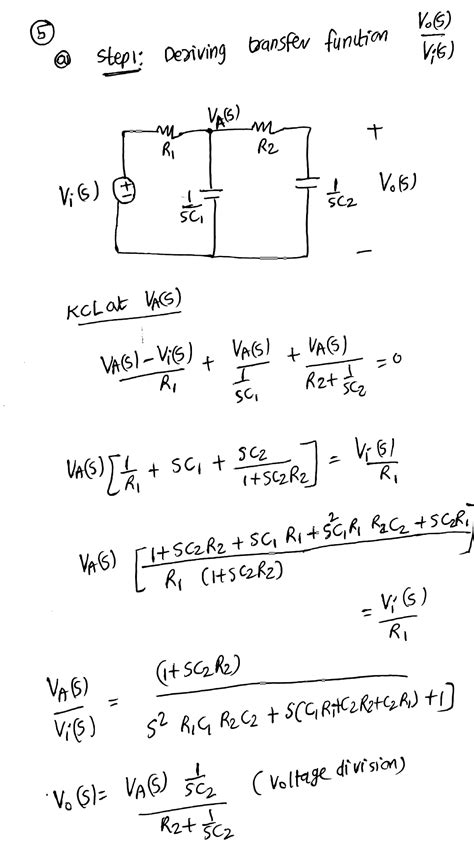 ⑤
ⓐ Step1: Deriving transfer function V₀(S)/Vᵢ(S)
V_A(S)
R₁ R₂ +
Vᵢ(S) ± 1/SC₁ 1/SC₂ V₀(S)
−
KCL at V_A(S)
(V_A(S)−Vᵢ(S))/R₁ + V_A(S)/(1/SC₁) + V_A(S)/(R₂+1/SC₂) = 0
V_A(S)[1/R₁ + SC₁ + SC₂/(1+SC₂R₂)] = Vᵢ(S)/R₁
V_A(S) [(1+SC₂R₂ + SC₁R₁ + S²C₁R₁ R₂C₂ + SC₂R₁)/(R₁ (1+SC₂R₂))]
= Vᵢ(S)/R₁
V_A(S)/Vᵢ(S) = (1+SC₂R₂)/(S² R₁C₁ R₂C₂ + S(C₁R₁+C₂R₂+C₂R₁) +1]
V₀(S) = (V_A(S) 1/SC₂)/(R₂+1/SC₂) (voltage division)